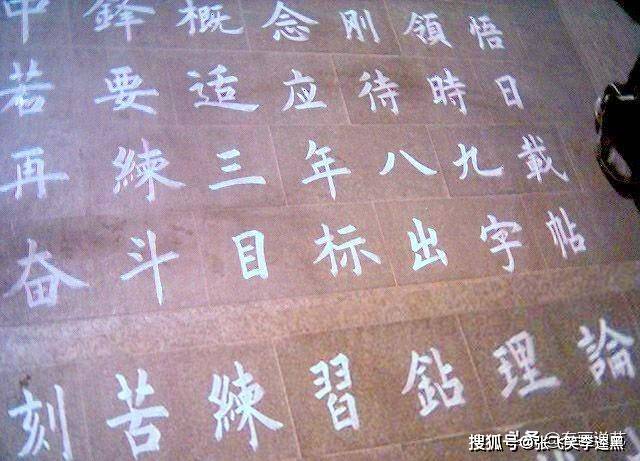 中鋒概念刚領悟
若要适应待時日
再練三年八九載
奋斗目标出字帖
刻苦練習鉆理論
搜狐号@张飞笑李逵黑